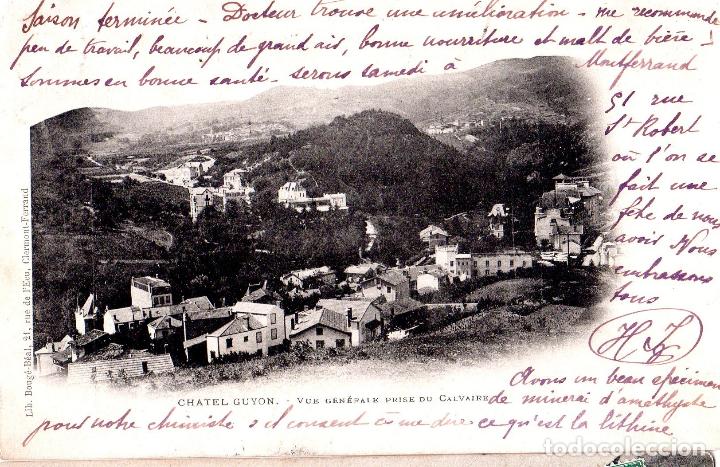 Saison terminée - Docteur trouve une amélioration - me recommande
peu de travail, beaucoup de grand air, bonne nourriture et malt de bière!
Sommes en bonne santé - serons samedi à
Montferrand
51 rue
St Robert
où l'on se
fait une
fête de vous
avoir Nous
embrassons
tous
H
Lib. Bougé-Béal, 21, rue de l'Eco, Clermont-Ferrand
CHATEL GUYON. - VUE GÉNÉRALE PRISE DU CALVAIRE
Avons un beau spécimen
de minerai d'améthyste
pour notre chimiste s'il consent à me dire ce qu'est la lithine
todocoleccion.net